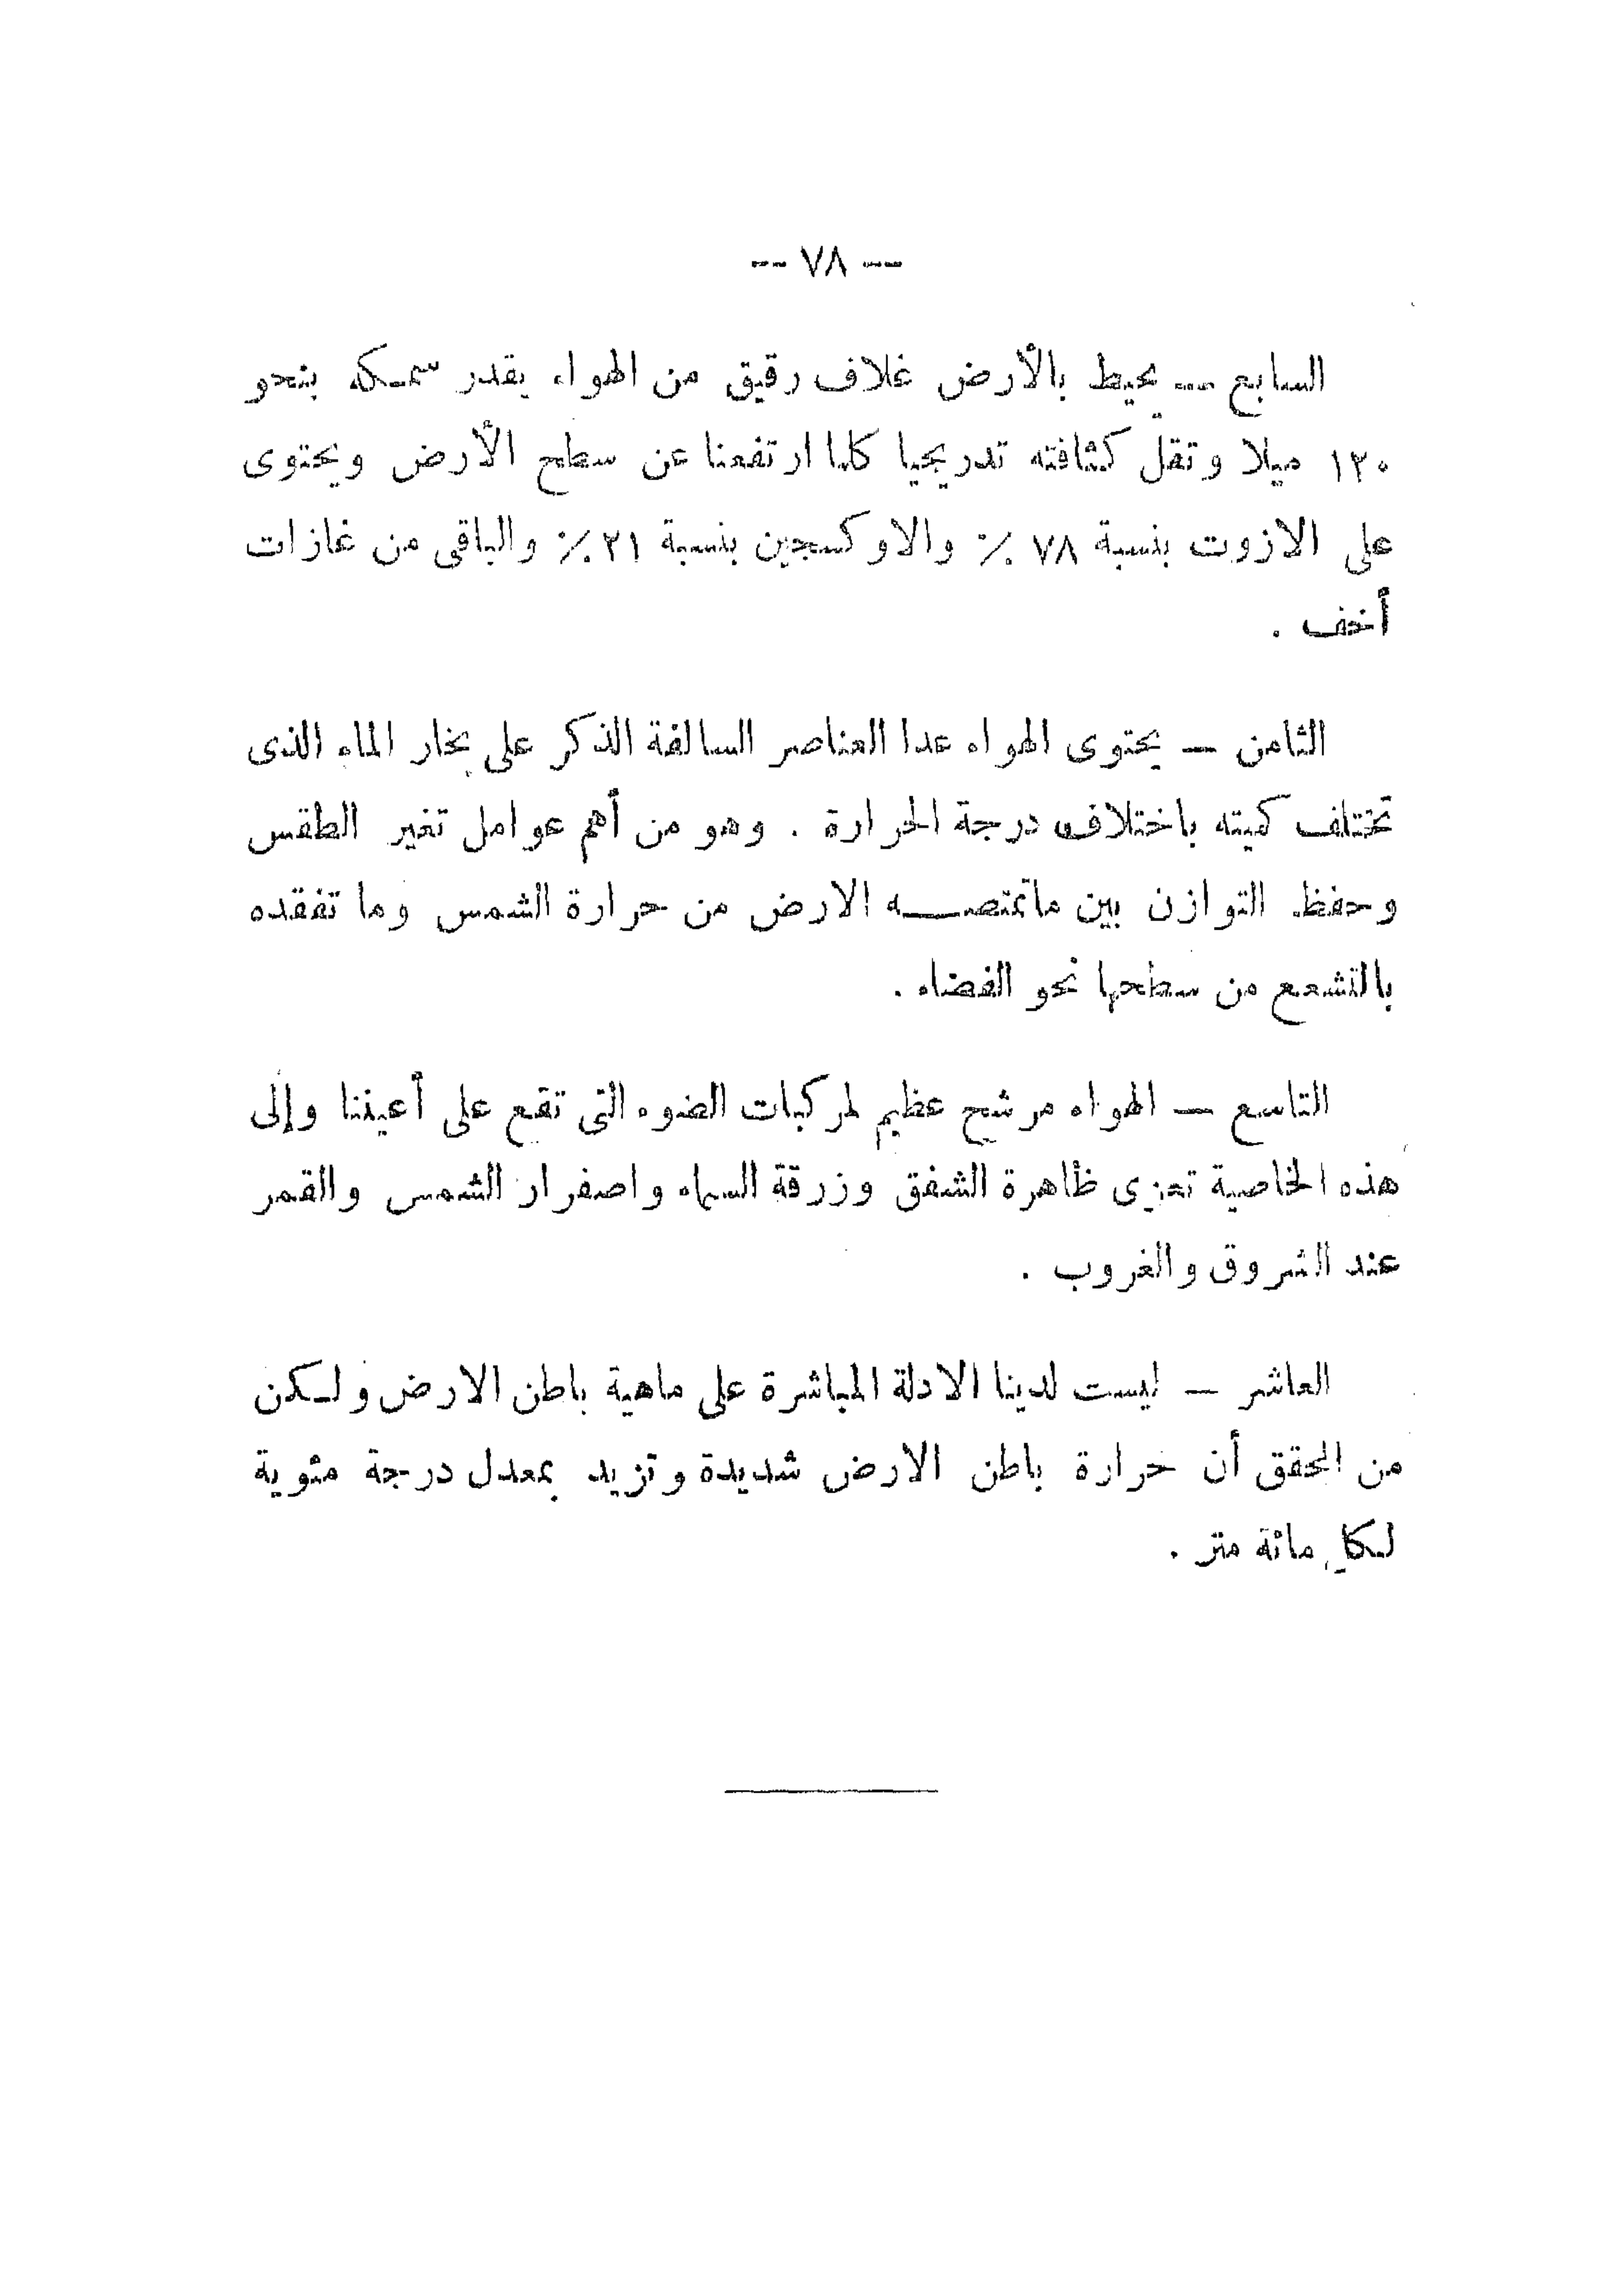 -- ٧٨ --
السابع -- يحيط بالأرض غلاف رقيق من الهواء يقدر سمكه بنحو
١٢٠ ميلا وتقل كثافته تدريجيا كلما ارتفعنا عن سطح الأرض ويحتوى
على الازوت بنسبة ٧٨ ٪ والاوكسجين بنسبة ٢١ ٪ والباقى من غازات
أخف .
الثامن — يحتوى الهواء عدا العناصر السالفة الذكر على بخار الماء الذى
تختلف كميته باختلاف درجة الحرارة . وهو من أهم عوامل تغير الطقس
وحفظ التوازن بين ماتمتصه الارض من حرارة الشمس وما تفقده
بالتشعع من سطحها نحو الفضاء .
التاسع — الهواء مرشح عظيم لمركبات الضوء التى تقع على أعيننا وإلى
هذه الخاصية تعزى ظاهرة الشفق وزرقة السماء واصفرار الشمس والقمر
عند الشروق والغروب .
العاشر — ليست لدينا الادلة المباشرة على ماهية باطن الارض ولكن
من المحقق أن حرارة باطن الارض شديدة وتزيد بمعدل درجة مئوية
لكل مائة متر .